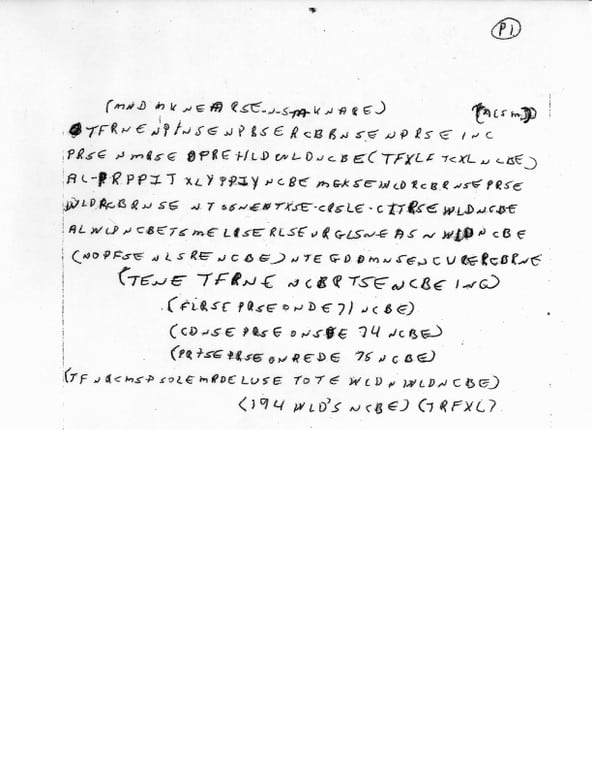 P1
(MNDMKNEARSE-N-S-M-KNARE) (ACSM)
TFRNENPINSENPBSERCBBNSENPRSEINC
PRSENMRSEOPREHLDWLDNCBE(TFXLFTCXLNCBE)
AL-PRPPITXLYPPIYNCBEMGKSEWLDRCBRNSEPRSE
WLDRCBRNSENTOSNENTXSE-CRSLE-CITRSEWLDNCBE
ALWLDNCBETSMELRSERLSEURGLSNEASNWLDNCBE
(NOPFSENLSRENCBE)NTEGDDMNSENCURERCBRNE
(TENETFRNENCBRTSENCBEING)
(FLRSEPRSEONDE71NCBE)
(CDNSEPRSEONSDE74NCBE)
(PRTSEPRSEONREDE75NCBE)
(TFNRCMSPSOLEMRDELUSETOTEWLDNWLDNCBE)
(194WLD'SNCBE)(TRFXL)